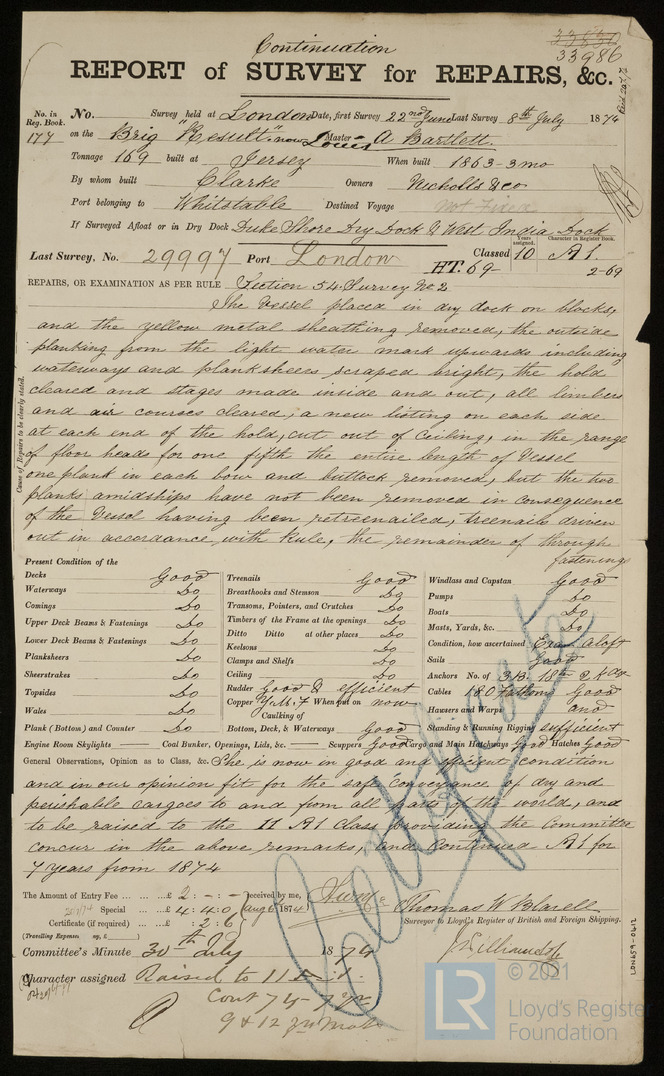 Continuation
33986
REPORT of SURVEY for REPAIRS, &c.
No. in Reg. Book. No. Survey held at London Date, first Survey 22nd June Last Survey 8th July 1874
177 on the Brig "Result" now Louis Master A Bartlett
Tonnage 169 built at Jersey When built 1863-3mo
By whom built Clarke Owners Nicholls & Co
Port belonging to Whitstable Destined Voyage Not Fixed
If Surveyed Afloat or in Dry Dock Duke Shore Dry Dock & West India Dock
Last Survey, No. 29997 Port London Classed Years assigned. 10 Character in Register Book. A1.
HT. 69- 2-69
REPAIRS, OR EXAMINATION AS PER RULE Section 54 Survey No 2
The Vessel placed in dry dock on blocks,
and the yellow metal sheathing removed, the outside
planking from the light water mark upwards including
waterways and planksheers scraped bright, the hold
cleared and stages made inside and out, all limbers
and air courses cleared, a new listing on each side
at each end of the hold, cut out of Ceiling, in the range
of floor heads for one fifth the entire length of Vessel
one plank in each bow and buttock removed, but the two
planks amidships have not been removed in consequence
of the Vessel having been retreenailed, treenails driven
out in accordance with Rule, the remainder of through
fastenings
Cause of Repairs to be clearly stated.
Present Condition of the
Decks Good
Waterways Do
Comings Do
Upper Deck Beams & Fastenings Do
Lower Deck Beams & Fastenings Do
Planksheers Do
Sheerstrakes Do
Topsides Do
Wales Do
Plank (Bottom) and Counter Do
Treenails Good
Breasthooks and Stemson Do
Transoms, Pointers, and Crutches Do
Timbers of the Frame at the openings Do
Ditto Ditto at other places Do
Keelsons Do
Clamps and Shelfs Do
Ceiling Do
Rudder Good & efficient
Copper Y.M. When put on now
Caulking of
Bottom, Deck, & Waterways Good
Windlass and Capstan Good
Pumps Do
Boats Do
Masts, Yards, &c. Do
Condition, how ascertained Exam Aloft
Sails Good
Anchors No. of 3 B. 1 St 2 K
Cables 180 Fathoms Good
Hawsers and Warps and
Standing & Running Rigging sufficient
Engine Room Skylights — Coal Bunker, Openings, Lids, &c. — Scuppers Good Cargo and Main Hatchways Good Hatches Good
General Observations, Opinion as to Class, &c. She is now in good and efficient condition
and in our opinion fit for the safe conveyance of dry and
perishable cargoes to and from all parts of the world, and
to be raised to the 11 A1 Class providing the Committee
concur in the above remarks, and Continued A1 for
7 years from 1874
Certificate
The Amount of Entry Fee ... £ 2 : - : - received by me,
Special ... £ 4 : 4 : 0 Aug 6 1874
Certificate (if required) ... £ : 2 : 6
(Travelling Expenses £ )
Thomas W. Blarell
Surveyor to Lloyd's Register of British and Foreign Shipping.
Committee's Minute 30th July 1874
Character assigned Raised to 11 A1.
Cont 74 - 7 yrs
LON659-0612
LR
© 2021
Lloyd's Register
Foundation